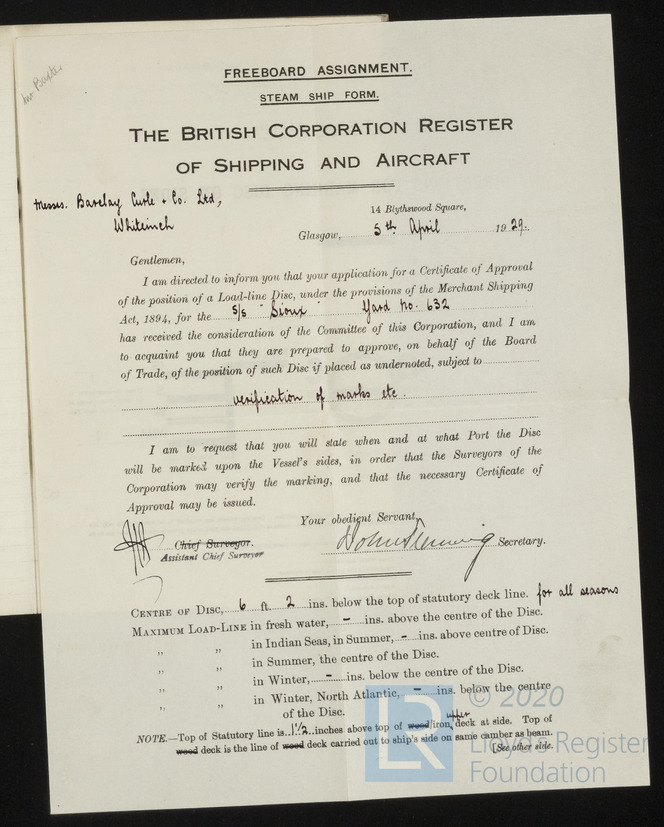 Mr Baxter
FREEBOARD ASSIGNMENT.
STEAM SHIP FORM.
THE BRITISH CORPORATION REGISTER
OF SHIPPING AND AIRCRAFT
Messrs. Barclay Curle & Co. Ltd,
Whiteinch
14 Blythswood Square,
Glasgow, 5th April 1929.
Gentlemen,
I am directed to inform you that your application for a Certificate of Approval
of the position of a Load-line Disc, under the provisions of the Merchant Shipping
Act, 1894, for the s/s "Sioux" Yard No. 632
has received the consideration of the Committee of this Corporation, and I am
to acquaint you that they are prepared to approve, on behalf of the Board
of Trade, of the position of such Disc if placed as undernoted, subject to
verification of marks etc.
I am to request that you will state when and at what Port the Disc
will be marked upon the Vessel's sides, in order that the Surveyors of the
Corporation may verify the marking, and that the necessary Certificate of
Approval may be issued.
Your obedient Servant,
Chief Surveyor.
Assistant Chief Surveyor
John Fleming Secretary.
CENTRE OF DISC, 6 ft. 2 ins. below the top of statutory deck line. for all seasons
MAXIMUM LOAD-LINE in fresh water, - ins. above the centre of the Disc.
" " in Indian Seas, in Summer, - ins. above centre of Disc.
" " in Summer, the centre of the Disc.
" " in Winter, - ins. below the centre of the Disc.
" " in Winter, North Atlantic, - ins. below the centre
of the Disc.
NOTE.—Top of Statutory line is 1 1/2 inches above top of wood/iron upper deck at side. Top of
wood deck is the line of wood deck carried out to ship's side on same camber as beam.
[See other side.
© 2020
LR
Lloyd's Register
Foundation